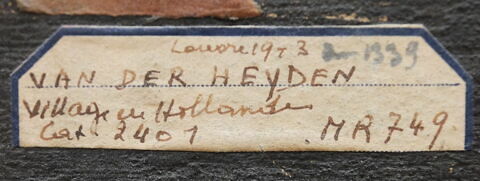 Louvre 1973 1339
VAN DER HEYDEN
Village en Hollande
Cat 2401 MR749